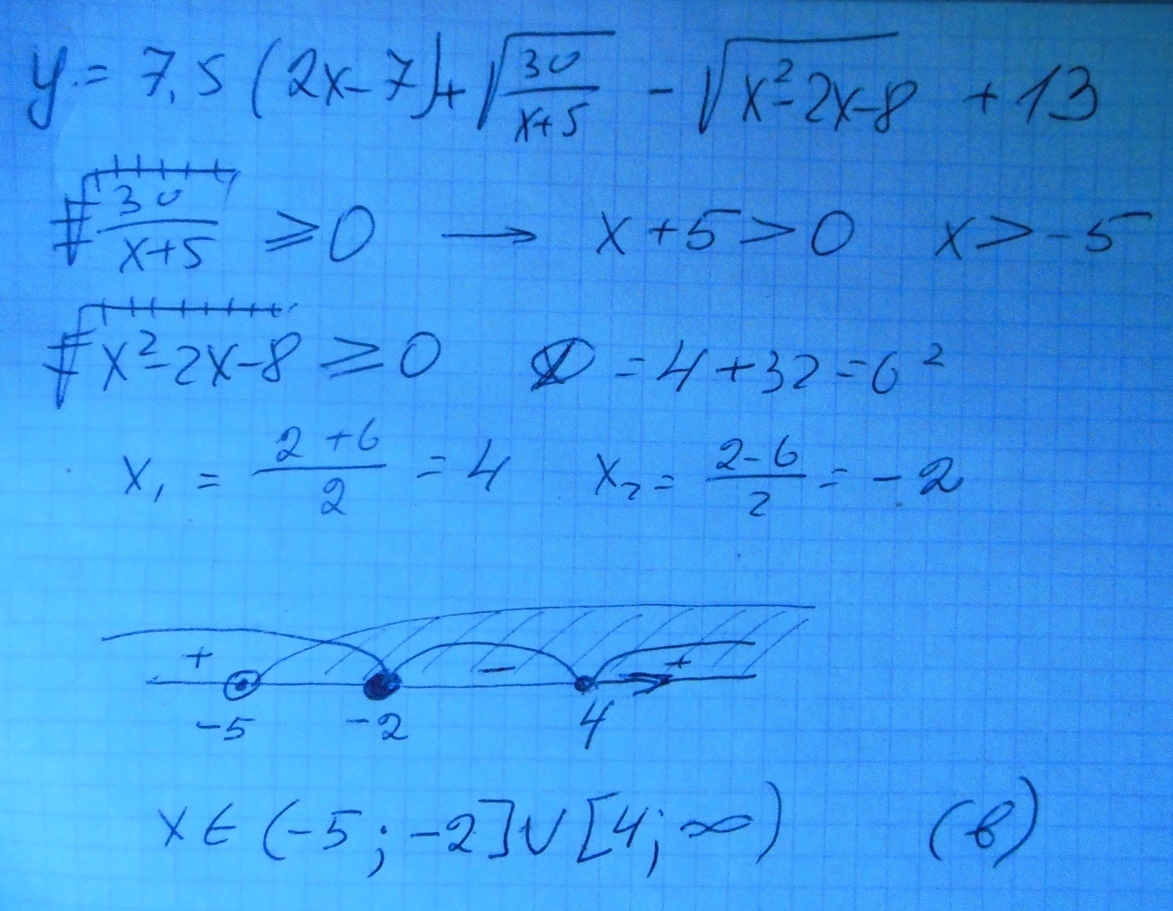 y = 7,5 (2x-7) + √(30/(x+5)) - √(x²-2x-8) + 13
30/(x+5) ≥ 0 → x+5>0 x>-5
x²-2x-8 ≥ 0 D = 4+32 = 6²
x₁ = (2+6)/2 = 4 x₂ = (2-6)/2 = -2
+ - +
-5 -2 4
x ∈ (-5; -2] ∪ [4; ∞) (в)